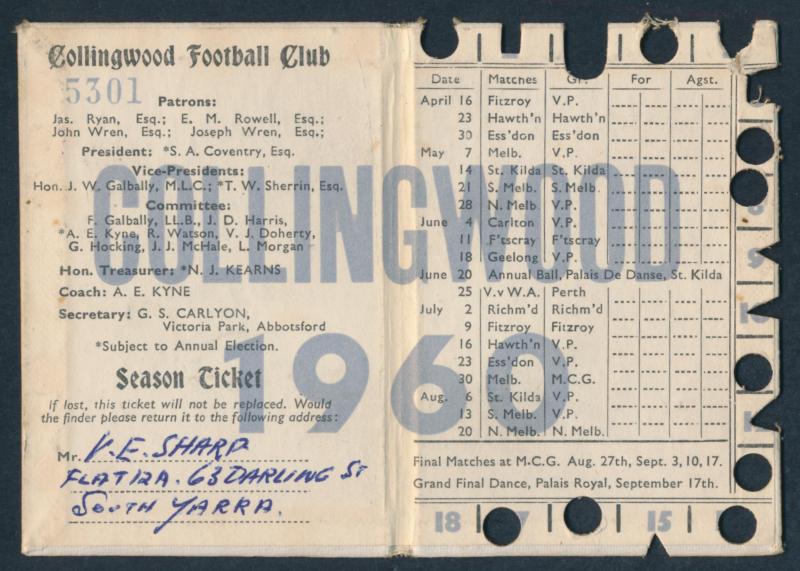 Collingwood Football Club
5301
Patrons:
Jas. Ryan, Esq.; E. M. Rowell, Esq.;
John Wren, Esq.; Joseph Wren, Esq.;
President: *S. A. Coventry, Esq.
Vice-Presidents:
Hon. J. W. Galbally, M.L.C.; *T. W. Sherrin, Esq.
Committee:
F. Galbally, LL.B., J. D. Harris,
*A. E. Kyne, R. Watson, V. J. Doherty,
G. Hocking, J. J. McHale, L. Morgan
Hon. Treasurer: *N. J. KEARNS
Coach: A. E. KYNE
Secretary: G. S. CARLYON,
Victoria Park, Abbotsford
*Subject to Annual Election.
Season Ticket
If lost, this ticket will not be replaced. Would
the finder please return it to the following address:
Mr. V. E. SHARP
FLAT 12A. 63 DARLING ST
SOUTH YARRA.
COLLINGWOOD
1960
Date Matches Gr. For Agst.
April 16 Fitzroy V.P.
23 Hawth'n Hawth'n
30 Ess'don Ess'don
May 7 Melb. V.P.
14 St. Kilda St. Kilda
21 S. Melb. S. Melb.
28 N. Melb. V.P.
June 4 Carlton V.P.
11 F'tscray F'tscray
18 Geelong V.P.
June 20 Annual Ball, Palais De Danse, St. Kilda
25 V. v W.A. Perth
July 2 Richm'd Richm'd
9 Fitzroy Fitzroy
16 Hawth'n V.P.
23 Ess'don V.P.
30 Melb. M.C.G.
Aug. 6 St. Kilda V.P.
13 S. Melb. V.P.
20 N. Melb. N. Melb.
Final Matches at M.C.G. Aug. 27th, Sept. 3, 10, 17.
Grand Final Dance, Palais Royal, September 17th.
9
18 15